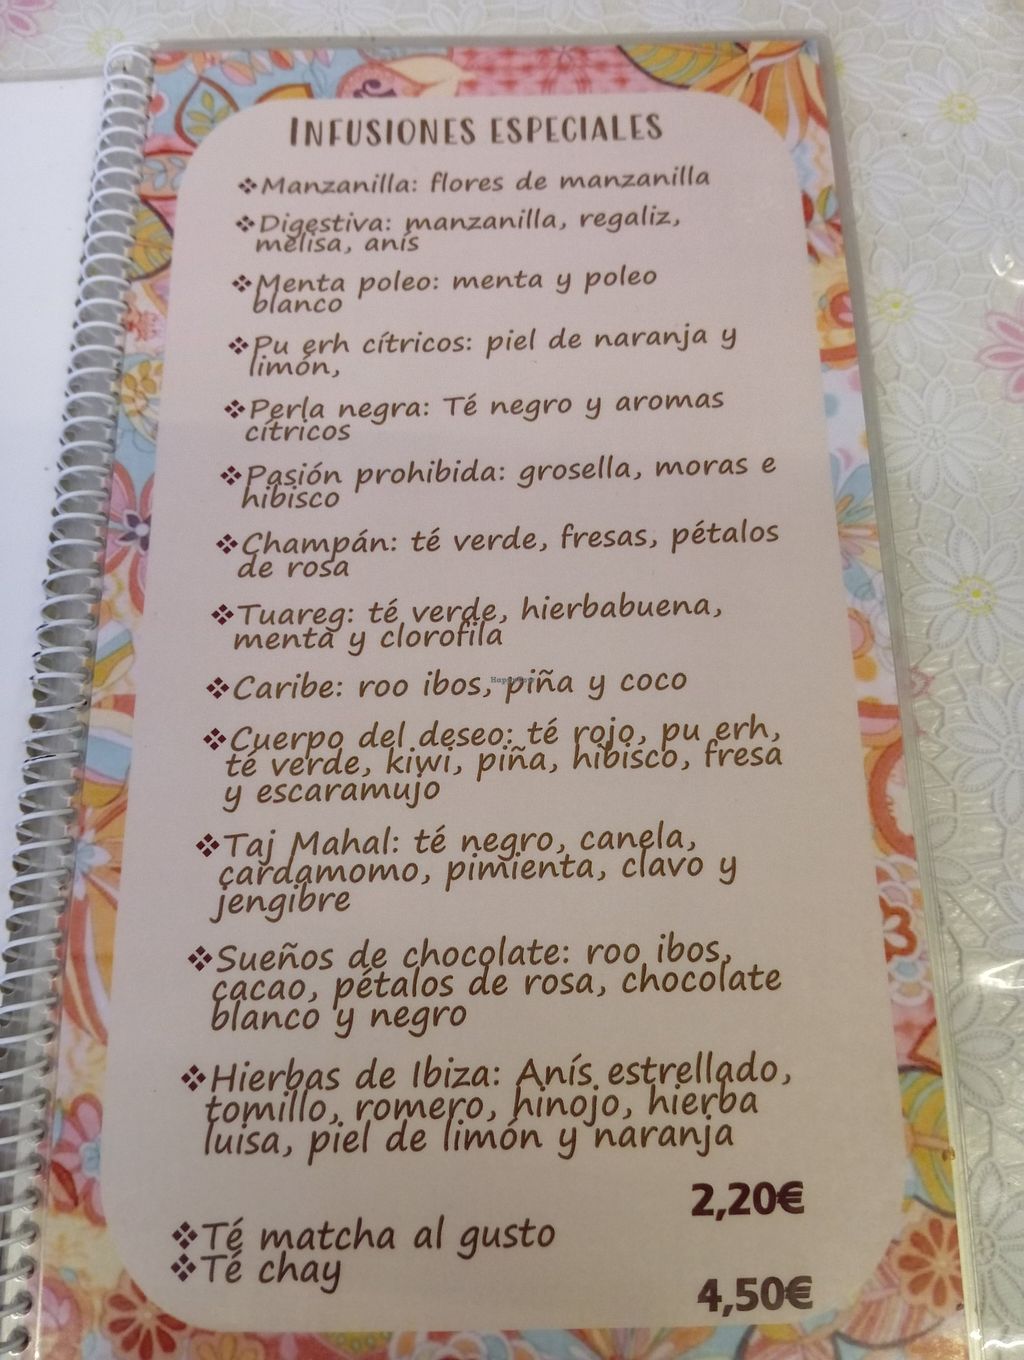 INFUSIONES ESPECIALES
❖Manzanilla: flores de manzanilla
❖Digestiva: manzanilla, regaliz,
melisa, anís
❖Menta poleo: menta y poleo
blanco
❖Pu erh cítricos: piel de naranja y
limón,
❖Perla negra: Té negro y aromas
cítricos
❖Pasión prohibida: grosella, moras e
hibisco
❖Champán: té verde, fresas, pétalos
de rosa
❖Tuareg: té verde, hierbabuena,
menta y clorofila
❖Caribe: roo ibos, piña y coco
HappyCow
❖Cuerpo del deseo: té rojo, pu erh,
té verde, kiwi, piña, hibisco, fresa
y escaramujo
❖Taj Mahal: té negro, canela,
cardamomo, pimienta, clavo y
jengibre
❖Sueños de chocolate: roo ibos,
cacao, pétalos de rosa, chocolate
blanco y negro
❖Hierbas de Ibiza: Anís estrellado,
tomillo, romero, hinojo, hierba
luisa, piel de limón y naranja
2,20€
❖Té matcha al gusto
❖Té chay
4,50€